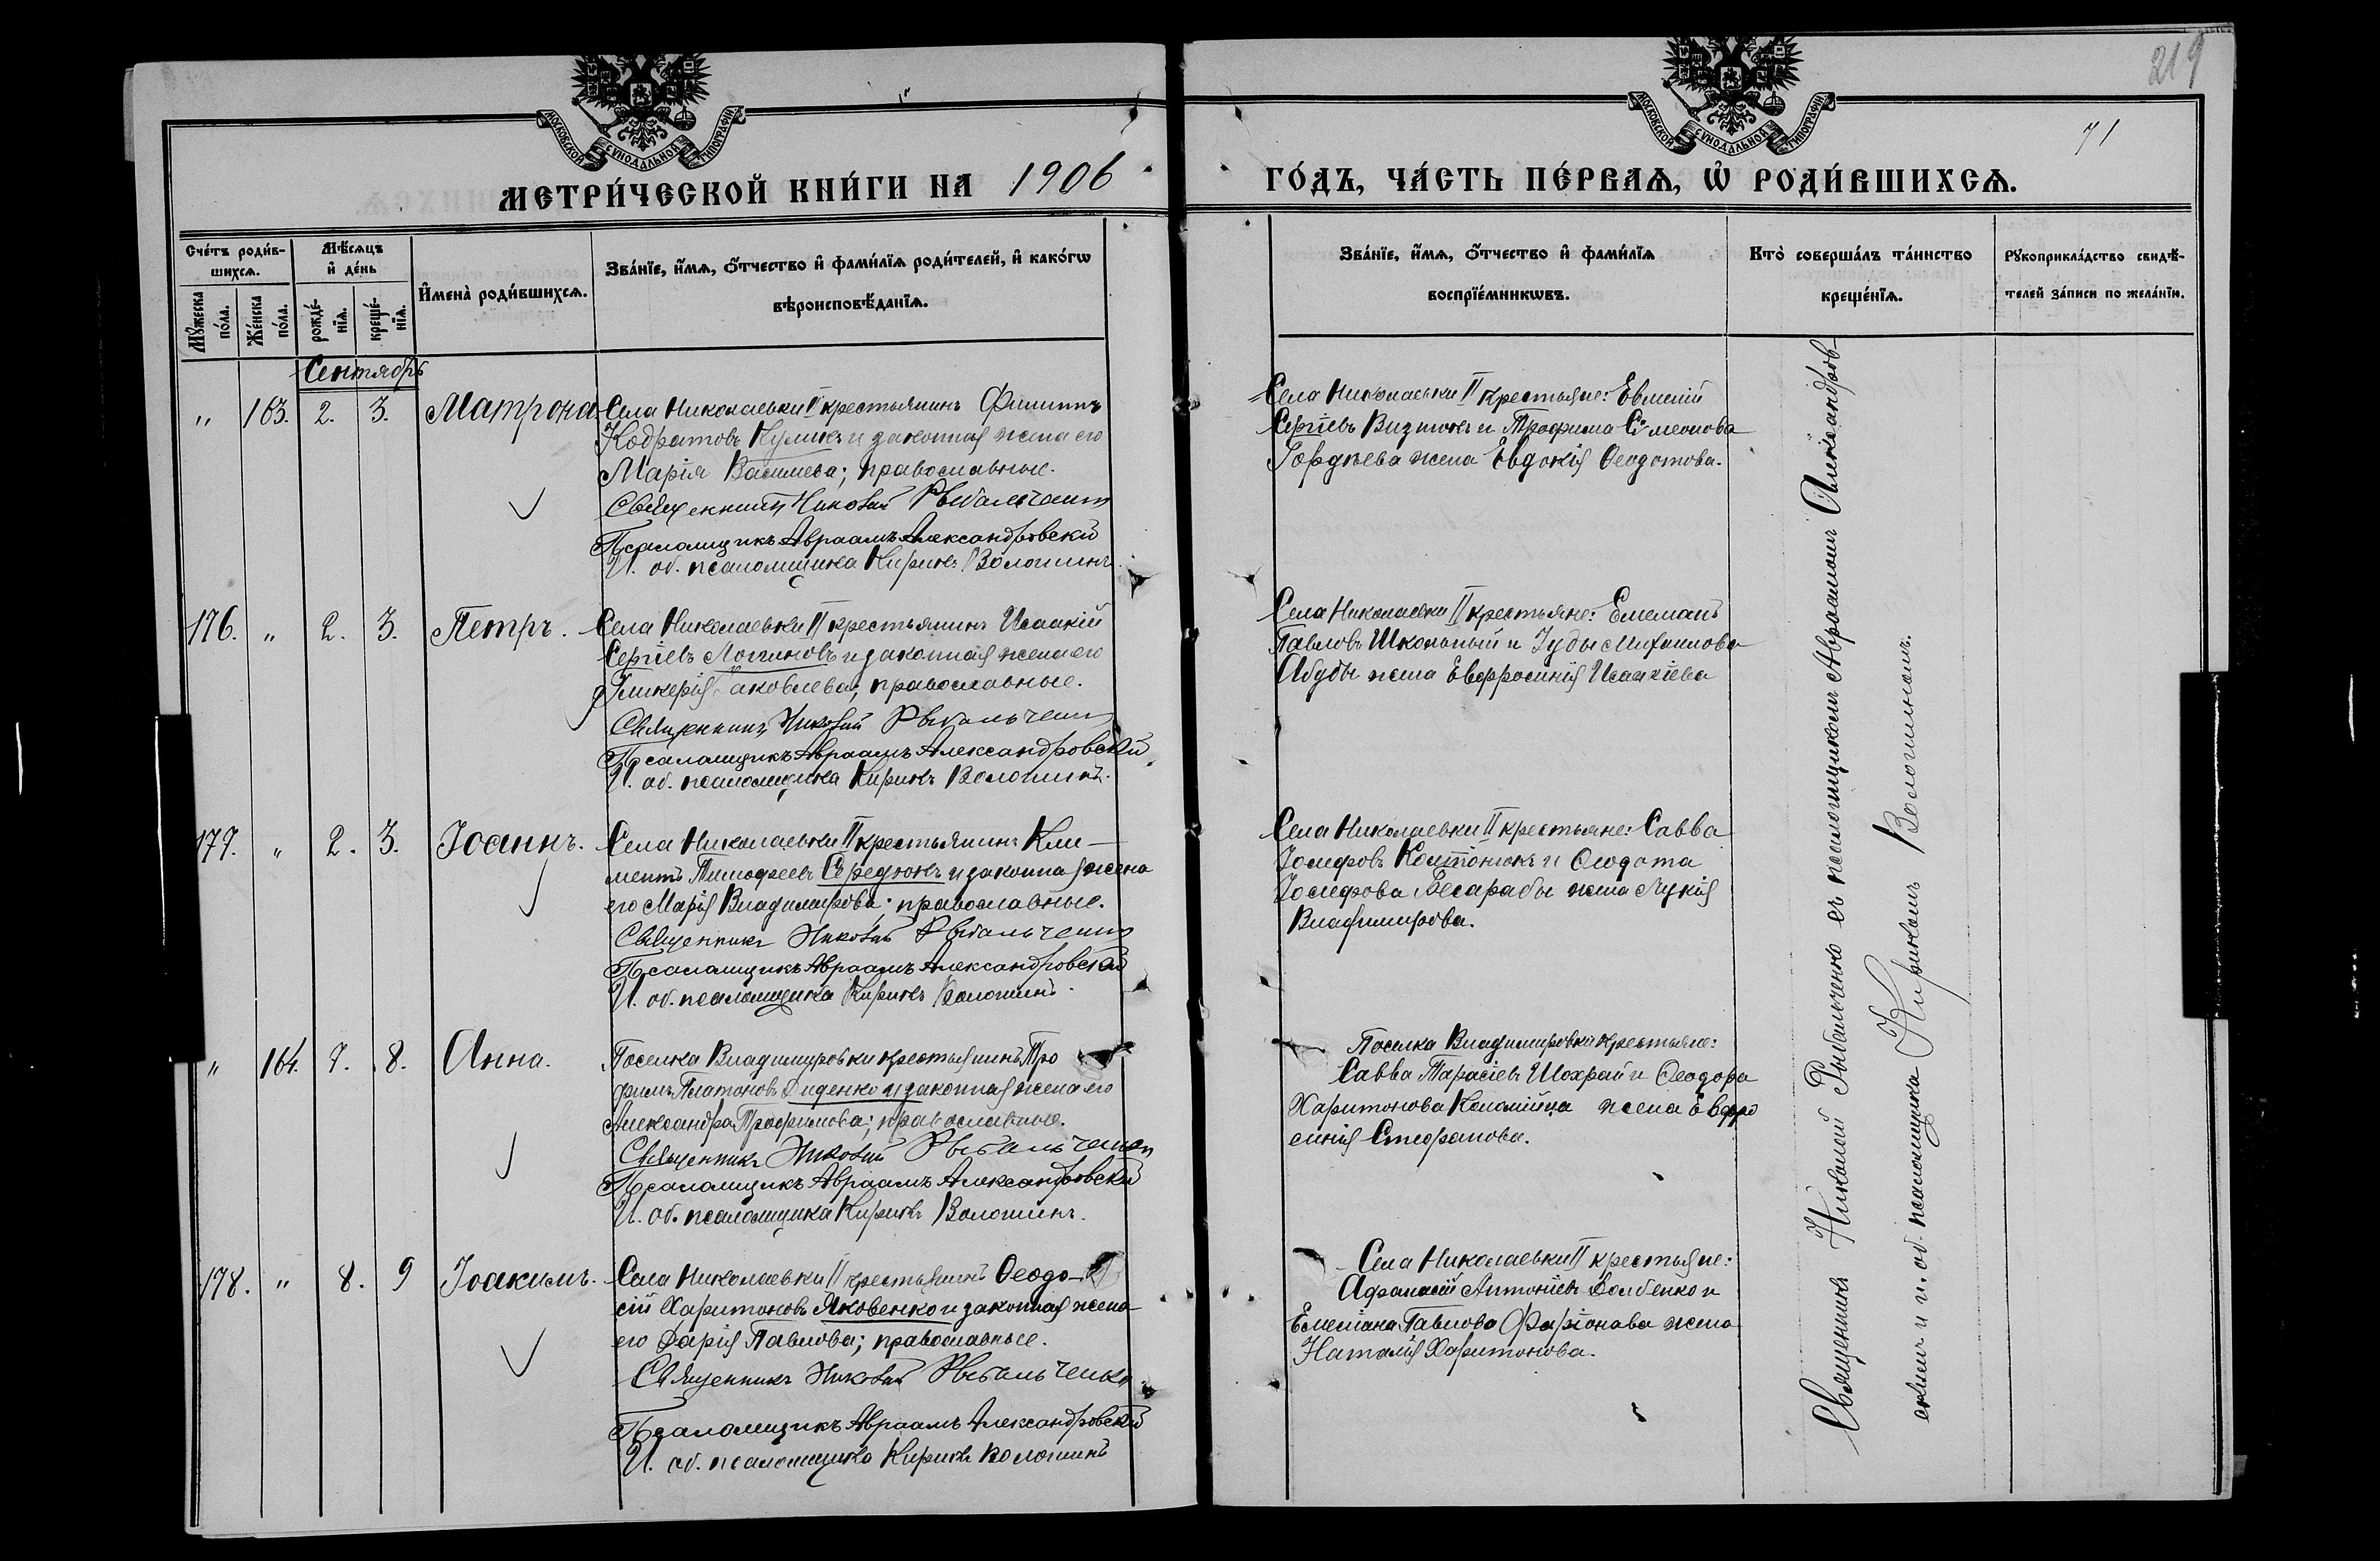 219
71
МОСКОВСКОЙ СѴНОДАЛЬНОЙ ТИПОГРАФІИ
МОСКОВСКОЙ СѴНОДАЛЬНОЙ ТИПОГРАФІИ
МЕТРИ́ЧЕСКОЙ КНИ́ГИ НА 1906
ГО́ДЪ, ЧА́СТЬ ПЕ́РВАѦ, Ѡ҆ РОДИ́ВШИХСѦ.
Сче́тъ роди́в-
шихсѧ.
Мѣ́сѧцъ
и҆ де́нь
Мꙋ́жеска
по́ла.
Же́нска
по́ла.
рожде́-
нїѧ.
креще́-
нїѧ.
И҆мена̀ роди́вшихсѧ.
Зва́нїе, и҆́мѧ, ѻ҆́тчество и҆ фами́лїѧ роди́телей, и҆ како́гѡ
вѣроисповѣ́данїѧ.
Зва́нїе, и҆́мѧ, ѻ҆́тчество и҆ фами́лїѧ
воспрїе́мникѡвъ.
Кто̀ соверша́лъ та́инство
креще́нїѧ.
Рꙋкоприкла́дство свидѣ́-
телей за́писи по жела́нїю.
Сентябрь
" 163. 2. 3. Матрона
Села Николаевки II крестьянинъ Филиппъ
Кодратовъ Куликъ и законная жена его
Марія Васильева; православные.
Священникъ Николай Рыбальченко
Псаломщикъ Авраамъ Александровскій
И. об. псаломщика Кирикъ Волошинъ
Села Николаевки II крестьяне: Евмений
Сергіевъ и Трофима Симеонова
Гордѣева жена Евдокія Ѳеодотова.
176. " 2. 3. Петръ.
Села Николаевки II крестьянинъ Исаакій
Сергіевъ Логиновъ и законная жена его
Гликерія Іаковлева; православные.
Священникъ Николай Рыбальченко
Псаломщикъ Авраамъ Александровскій
И. об. псаломщика Кирикъ Волошинъ.
Села Николаевки II крестьяне: Емеліанъ
Павловъ Школьный и Іуды Михаилова
жена Евфросинія Исаакіева
177. " 2. 3. Іоаннъ.
Села Николаевки II крестьянинъ Кли-
ментъ Тимофеевъ Середюкъ и законная жена
его Марія Владимирова; православные.
Священникъ Николай Рыбальченко
Псаломщикъ Авраамъ Александровскій
И. об. псаломщика Кирикъ Волошинъ.
Села Николаевки II крестьяне: Савва
Іосифовъ и Ѳеодота
Іосифова Бесарабы жена Лукія
Владимирова.
" 164. 7. 8. Анна.
Поселка Владимировки крестьянинъ Тро
фимъ Платоновъ Диденко и законная жена его
Александра Трофимова; православные.
Священникъ Николай Рыбальченко
Псаломщикъ Авраамъ Александровскій
И. об. псаломщика Кирикъ Волошинъ.
Поселка Владимировки крестьяне:
Савва Тарасіевъ Шохрай и Ѳеодора
Харитонова Коломійца жена Евфро
синія Стефанова.
178. " 8. 9 Іоакимъ.
Села Николаевки II крестьянинъ Ѳеодо-
сій Харитоновъ Яковенко и законная жена
его Дарія Павлова; православные.
Священникъ Николай Рыбальченко
Псаломщикъ Авраамъ Александровскій
И. об. псаломщика Кирикъ Волошинъ
Села Николаевки II крестьяне:
Афанасій Антоніевъ Долбенко и
Емеліана Павлова Фаріонова жена
Наталія Харитонова.
Священникъ Николай Рыбальченко съ псаломщикомъ Авраамомъ Александров-
скимъ и и. об. псаломщика Кирикомъ Волошинымъ.